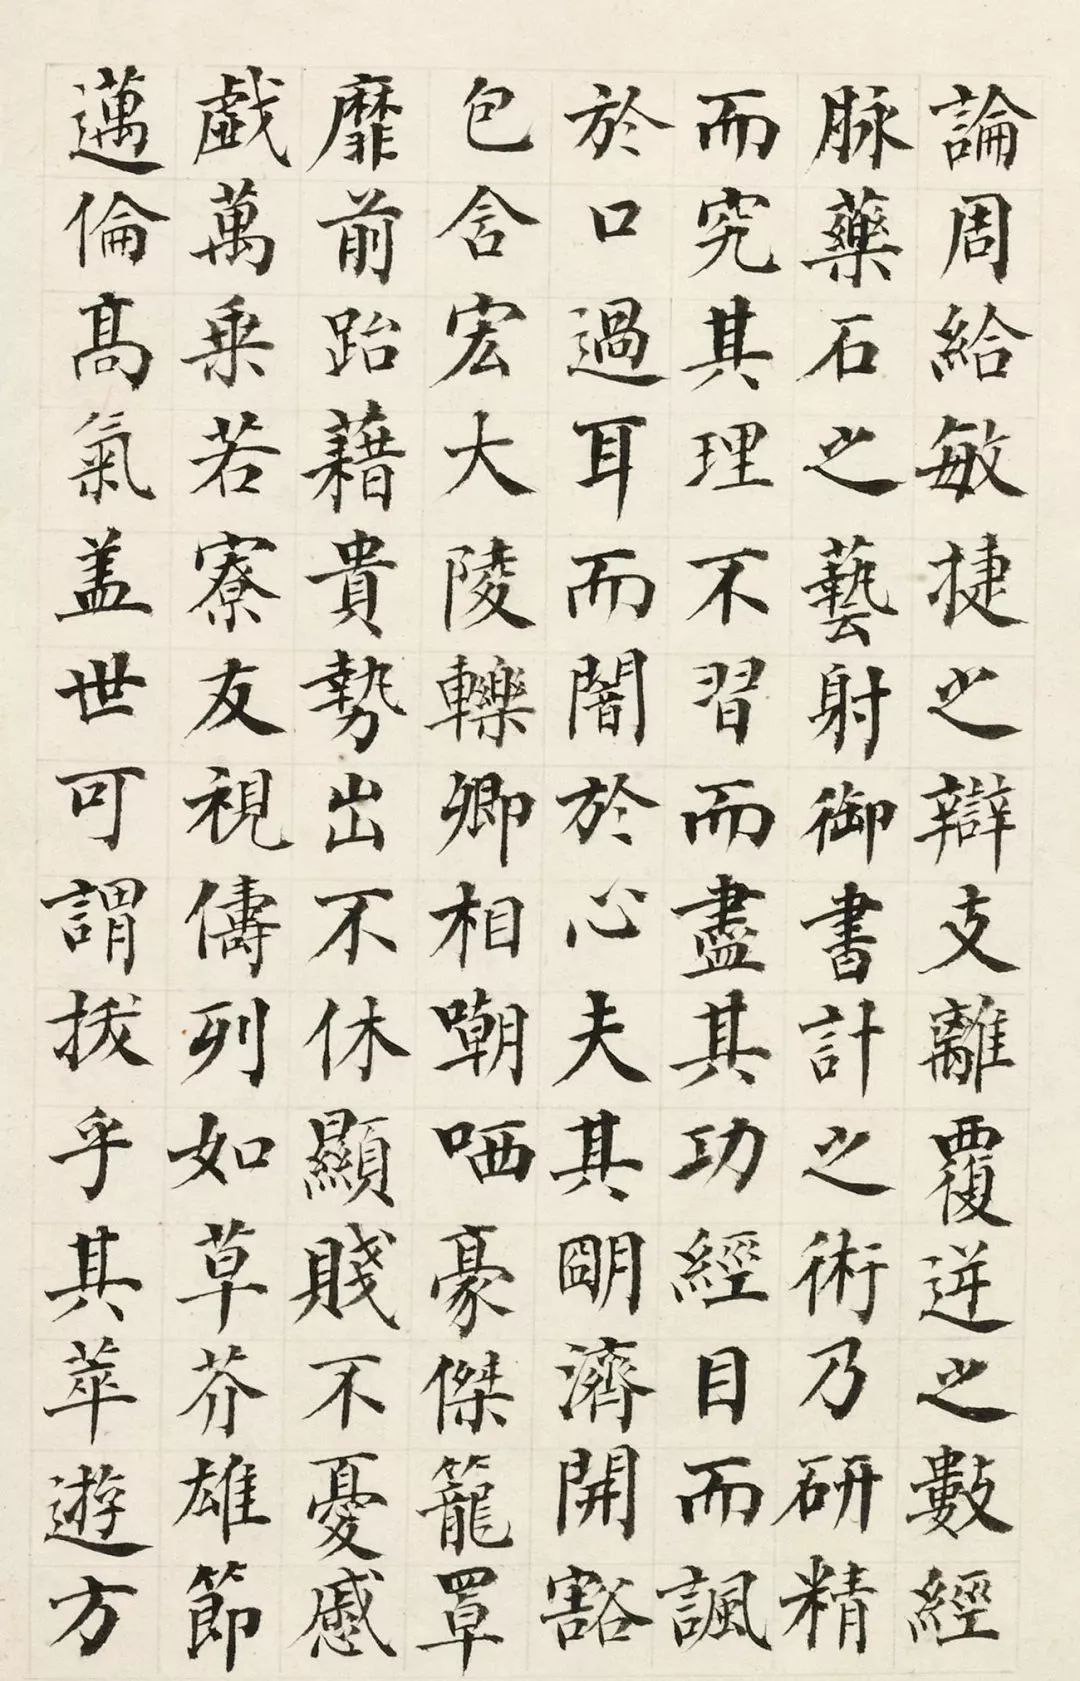 論周給敏捷之辯支離覆逆之數經
脉藥石之藝射御書計之術乃研精
而究其理不習而盡其功經目而諷
於口過耳而闇於心夫其朙濟開豁
包含宏大陵轢卿相嘲哂豪傑籠罩
靡前跆藉貴勢出不休顯賤不憂慼
戲萬乘若寮友視儔列如草芥雄節
邁倫高氣盖世可謂拔乎其萃遊方